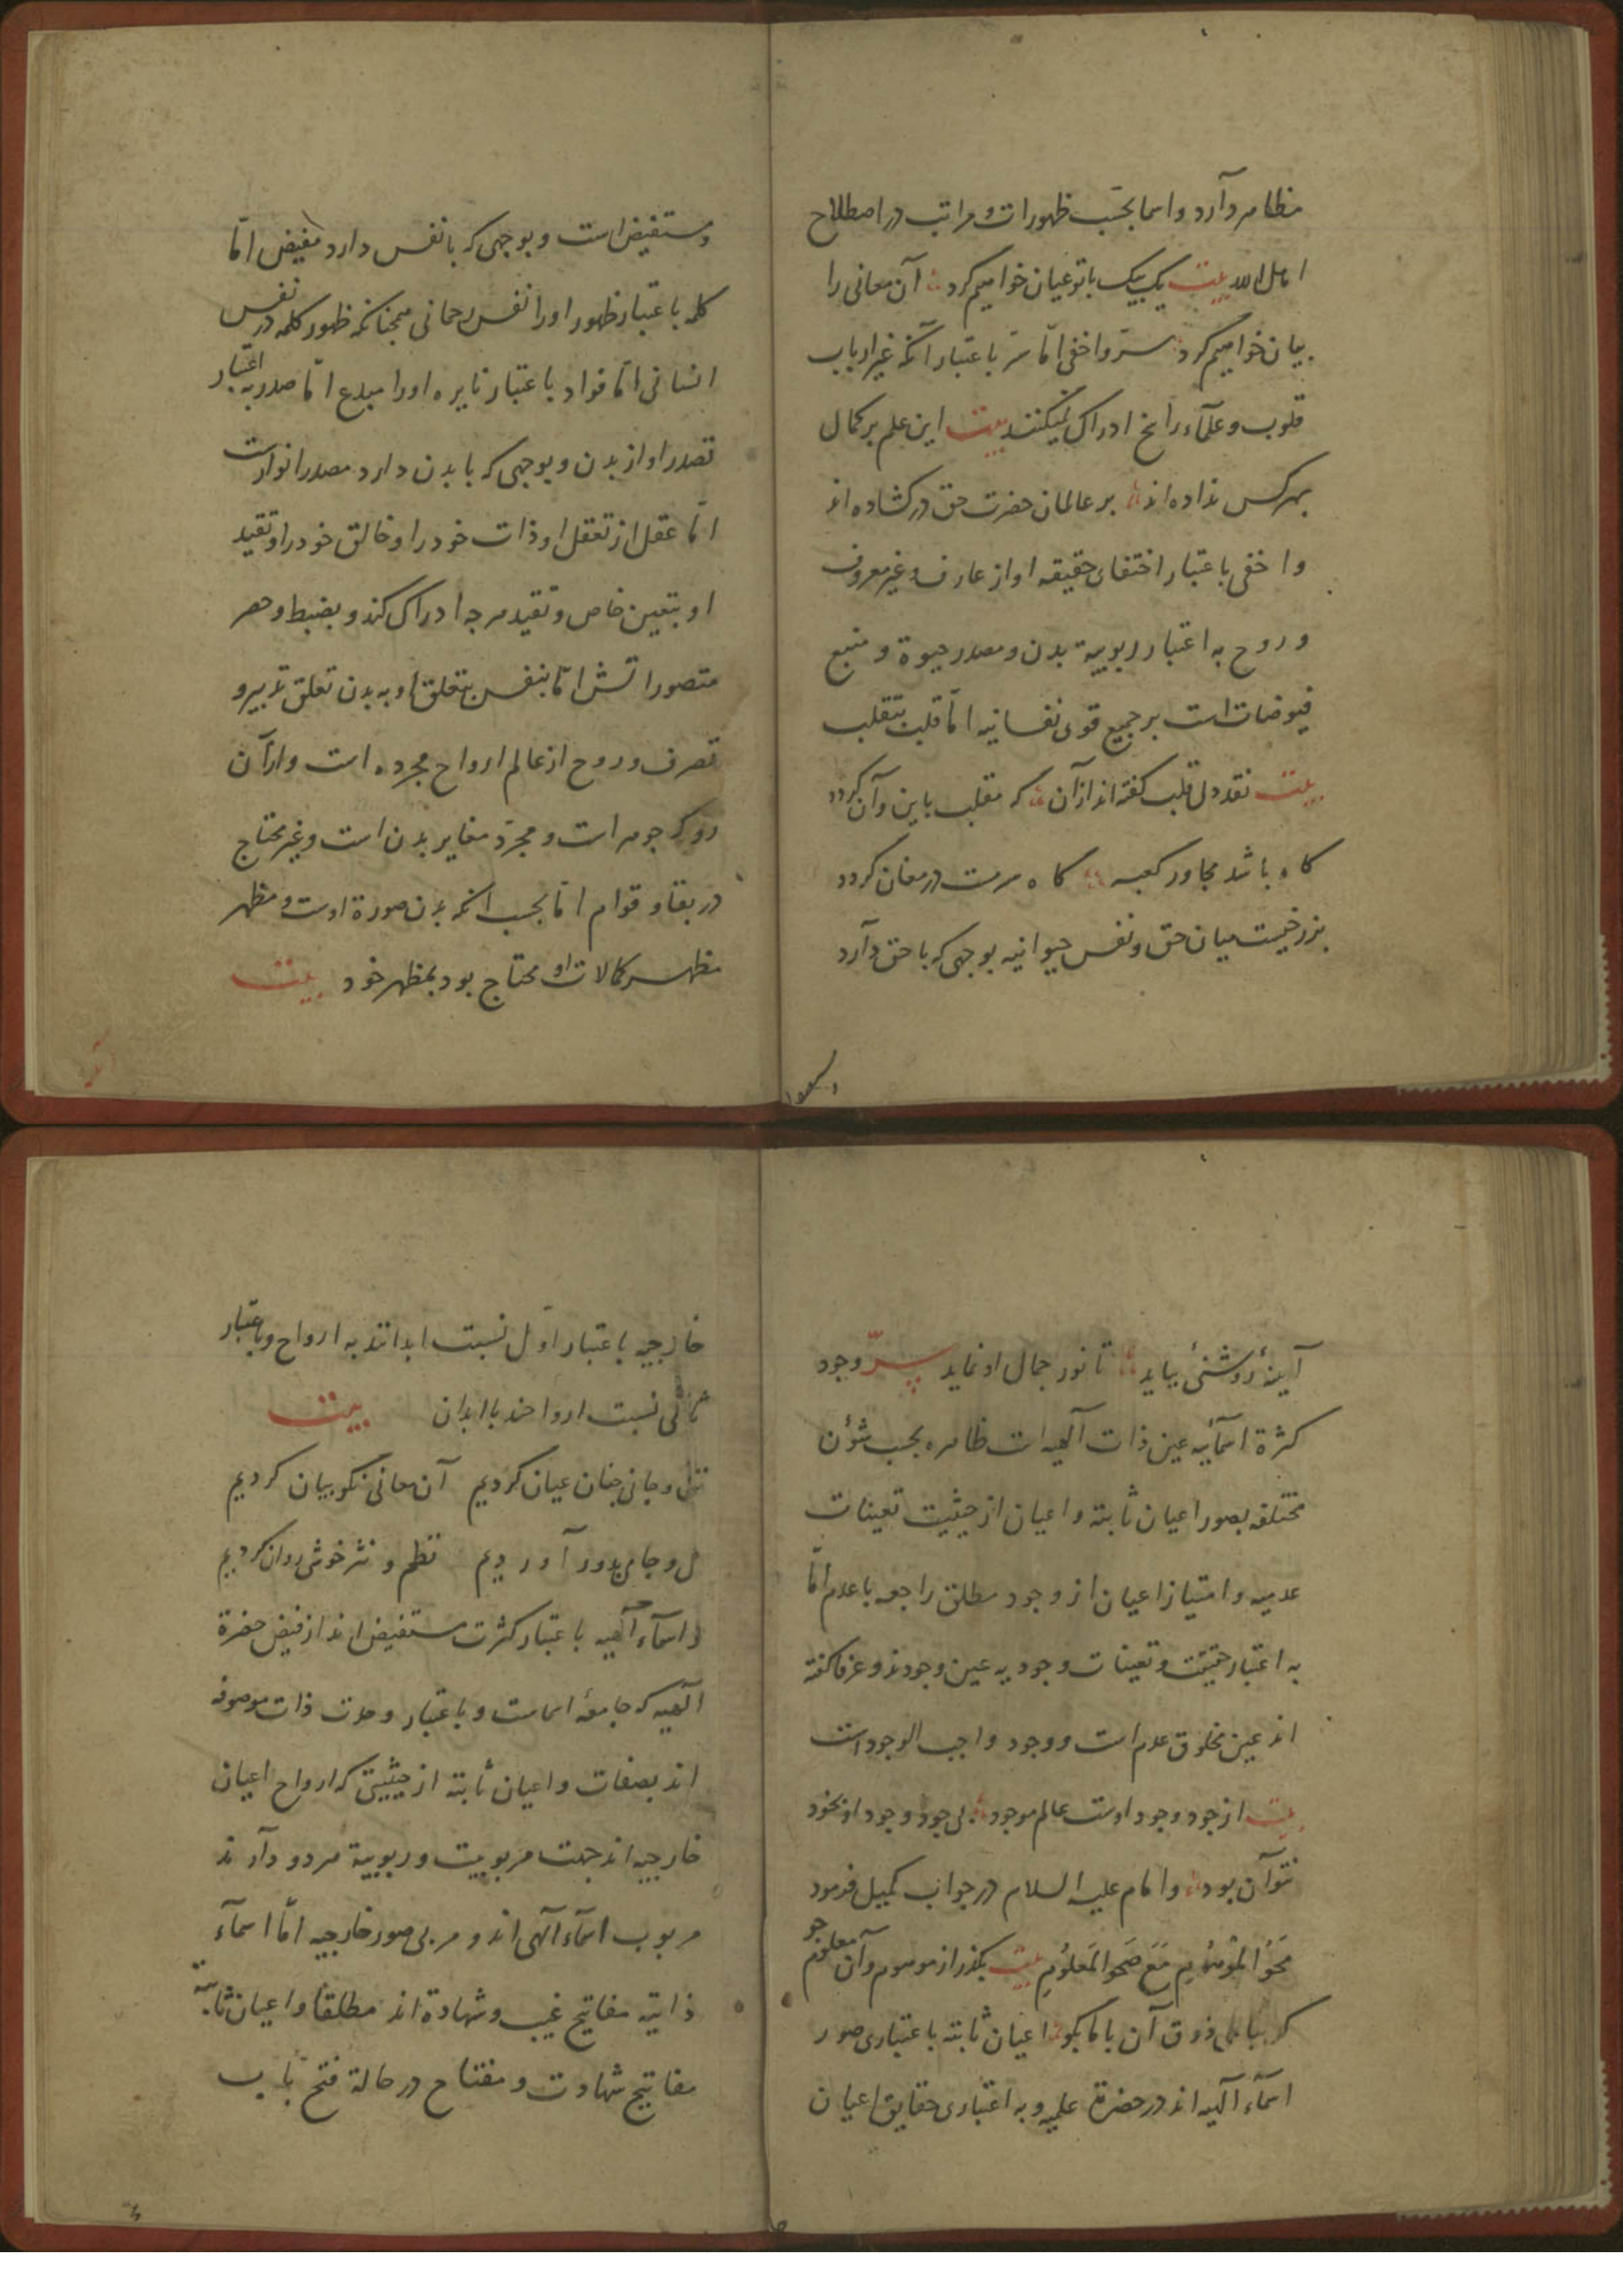 مظاهر دارد و اسما بحسب ظهورات و مراتب در اصطلاح
اهل الله بیت یک بیک با تو عیان خواهیم کرد آن معانی را
بیان خواهیم کرد سرّ و اخفی امّا سرّ باعتبار آنکه غیر ارباب
قلوب و علمآء راسخ ادراک نمیکنند بیت این علم بر کمال
بهر کس نداده اند بر عالمان حضرت حق در کشاده اند
و اخفی باعتبار اختفای حقیقه او از عارف و غیر معروف
و روح به اعتبار ربوبیة بدن و مصدر حیوة و منبع
فیوضات است بر جمیع قوی نفسانیه امّا قلب بتقلب
بیت نقد دل قلب کفته اند از آن که مقلب باین و آن کردد
کاه باشد مجاور کعبه کاه سرمست در مغان کردد
برزخیست میان حق و نفس حیوانیه بوجهی که با حق دارد
مستفیض است و بوجهی که با نفس دارد مفیض امّا
کلمه باعتبار ظهور او را نفس رحمانی همچنانکه ظهور کلمه در نفس
انسانی امّا فواد باعتبار تایره او را مبدع امّا صدر به اعتبار
تصدر او از بدن و بوجهی که با بدن دارد مصدر انوارست
امّا عقل از تعقل او ذات خود را و خالق خود را و تقید
او بتعین خاص و تقید هرچه ادراک کند و بضبط و حصر
متصوراتش امّا نفس بتعلق او به بدن تعلق تدبیر و
تصرف و روح از عالم ارواح مجرده است و از آن
رو که جوهر است و مجرّد مغایر بدن است و غیر محتاج
در بقا و قوام امّا بحسب انکه بدن صورة اوست و مظهر
مظهر کمالات او محتاج بود بمظهر خود بیت
آینهٔ روشنئ بباید تا نور جمال او نماید سرّ وجود
کثرة اسمآئیه عین ذات آلهیه است ظاهره بحسب شؤن
مختلفه بصور اعیان ثابته و اعیان از حیثیت تعینات
عدمیه و امتیاز اعیان از وجود مطلق راجعه با عدم امّا
به اعتبار حقیقت و تعینات وجودیه عین وجودند و عرفا کفته
اند عین مخلوق عدم است و وجود واجب الوجود است
بیت از جود وجود اوست عالم موجود بی جود وجود او بخود
نتوان بود و امام علیه السلام در جواب کمیل فرمود
مَحْوُ المَوْهُومِ مَعَ صَحْوِ المَعْلُومِ بیت بکذر از موهوم و آن معلوم جو
کر بیابی ذوق آن با ما بکو اعیان ثابته باعتباری صور
اسمآء آلهیه اند در حضرة علمیه و به اعتباری حقایق اعیان
خارجیه باعتبار اوّل نسبت ابدانند به ارواح و باعتبار
ثانی نسبت ارواحند با ابدان بیت
تنی و جانی چنان عیان کردیم آن معانی نکو بیان کردیم
می و جامی بدور آوردیم نظم و نثر خوشی روان کردیم
و اسمآء آلهیه باعتبار کثرت مستفیض اند از فیض حضرة
آلهیه که جامعهٔ اسماست و باعتبار وحدت ذات موصوفه
اند بصفات و اعیان ثابته از حیثیتی که ارواح اعیان
خارجیه اند جهت مربوبیت و ربوبیة هر دو دارند
مربوب اسمآء آلهی اند و مربی صور خارجیه امّا اسمآء
ذاتیه مفاتیح غیب و شهادة اند مطلقا و اعیان ثابته
مفاتیح شهادت و مفتاح در حالة فتح باب